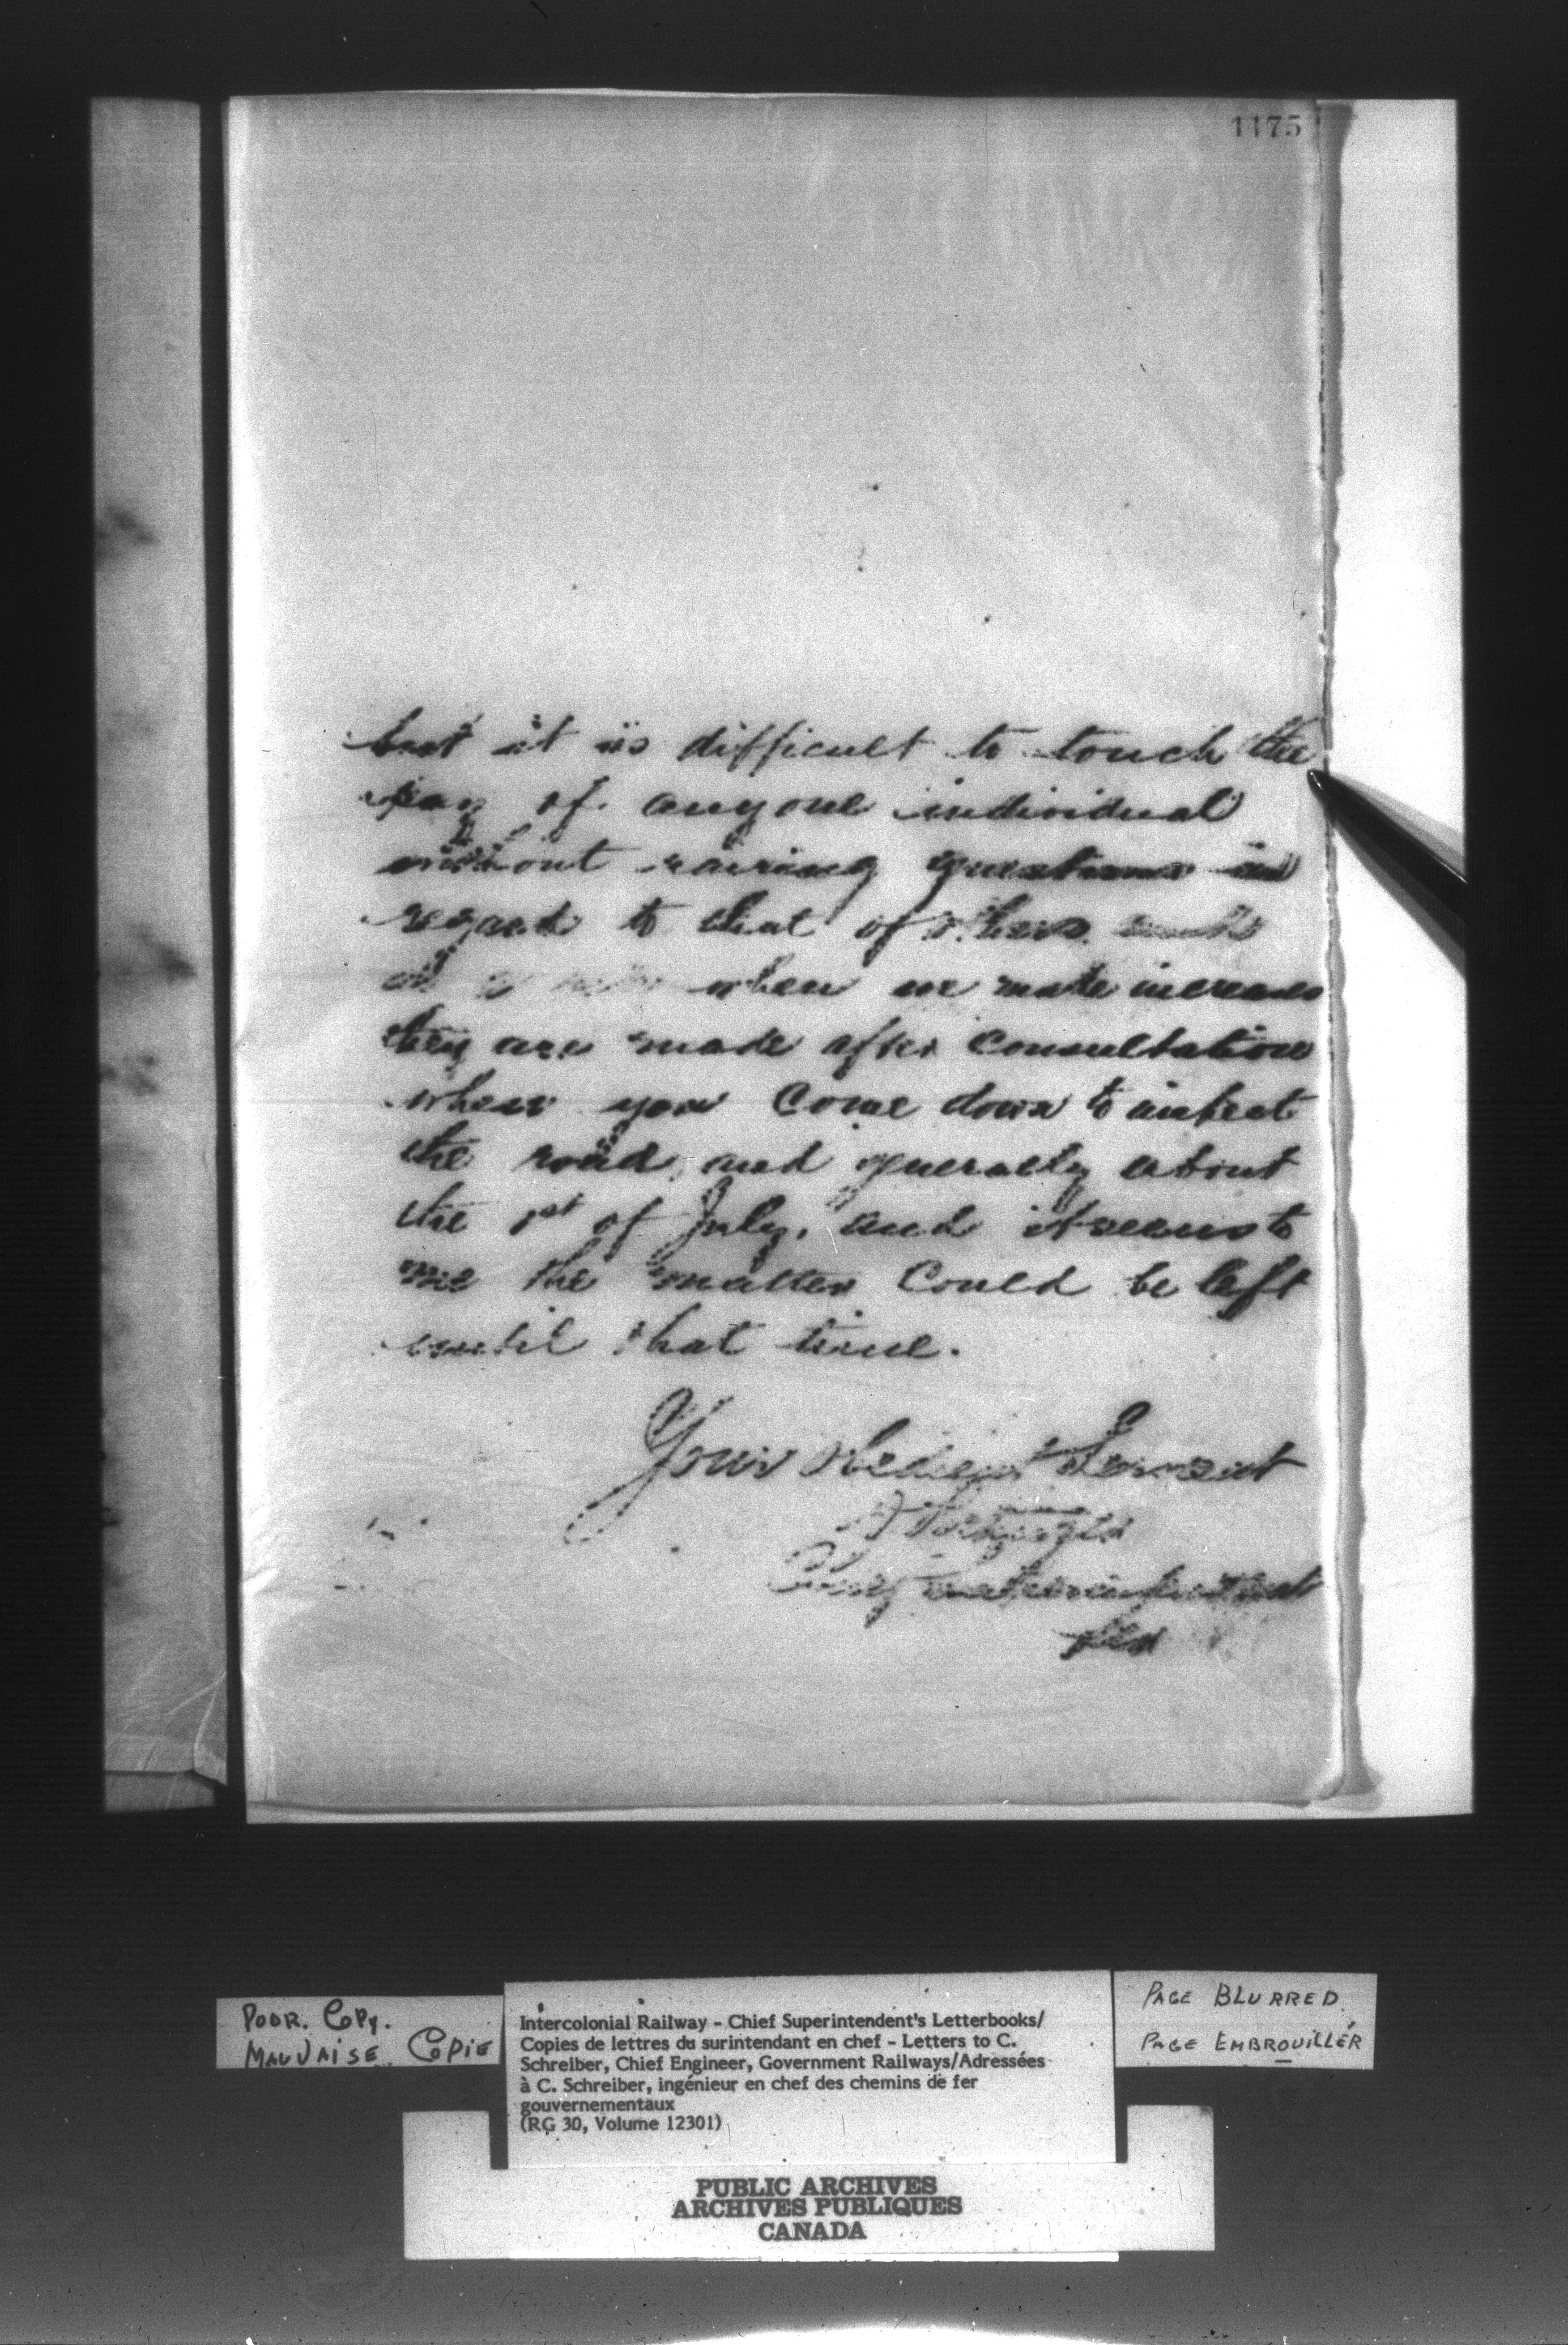 1175
but it is difficult to touch the
pay of anyone individual
without raising questions in
regard to that of others
when we make increases
they are made after consultation
when you come down to inspect
the road, and generally about
the 1st of July, and it seems to
me the matter could be left
until that time.
Your obedient Servant
Chief Superintendent
POOR. COPY.
MAUVAISE. COPIE
Intercolonial Railway - Chief Superintendent's Letterbooks/
Copies de lettres du surintendant en chef - Letters to C.
Schreiber, Chief Engineer, Government Railways/Adressées
à C. Schreiber, ingénieur en chef des chemins de fer
gouvernementaux
(RG 30, Volume 12301)
PAGE BLURRED.
PAGE EMBROUILLÉR
PUBLIC ARCHIVES
ARCHIVES PUBLIQUES
CANADA